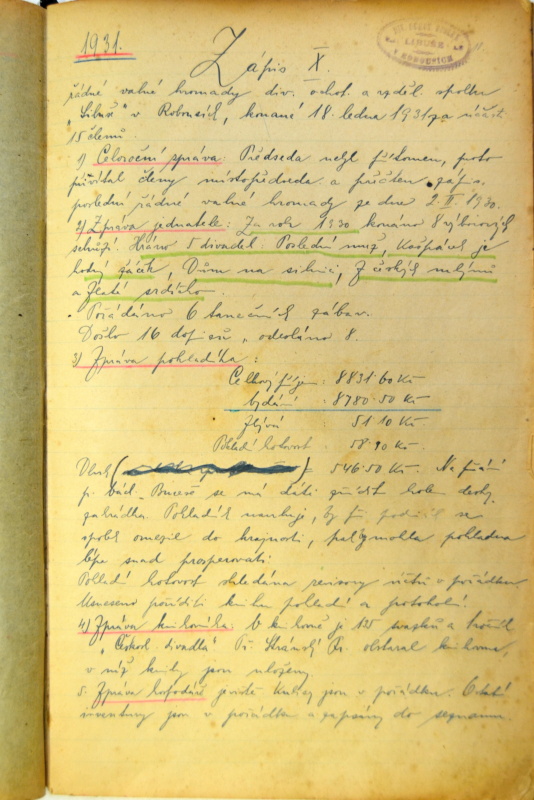 1931.
Zápis X.
řádné valné hromady div. ochot. a vzděl. spolku
„Libuše" v Robousích, konané 18. ledna 1931 za účasti
15 členů.
1) Celoroční správa: Předseda nebyl přítomen, proto
přivítal členy místopředseda a přečten zápis
poslední řádné valné hromady ze dne 2. II. 1930.
2) Zpráva jednatele: Za rok 1930 konáno 8 výborových
schůzí. Hráno 5 divadel: Poslední muž, Kašpárek je
hodný žáček, Dům na silnici, Z českých mlýnů
a Zlaté srdéčko.
Pořádáno 6 tanečních zábav.
Došlo 16 dopisů, odesláno 8.
3) Zpráva pokladníka:
Celkový příjem : 8831·60 Kč
vydání : 8780·50 Kč
Zbývá 51·10 Kč
Pokladní hotovost 58·90 Kč
546·50 Kč. Na přání
p. se má dáti kolem
zahrádka. Pokladník navrhuje, by se
spolek omezil do krajnosti, pokladna
lépe snad prosperovati.
Pokladní hotovost shledána revisory účtů v pořádku
Usneseno poříditi knihu pokladní a protokolní.
4) Zpráva knihovníka: V knihovně je 125 svazků a
„Českosl. divadla" Př. Stránský obstaral knihovnu,
v níž knihy jsou uloženy.
5. Zpráva hospodáře jeviště. Kulisy jsou v pořádku. Ostatní
inventury jsou v pořádku a zapsány do seznamu.
LIBUŠE
V ROBOUSÍCH